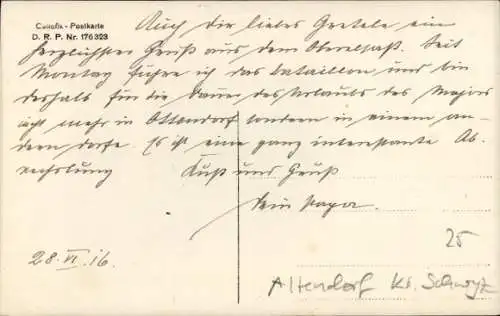 Cellofix - Postkarte
D. R. P. Nr. 176323
Auch dir liebes Gretele ein
herzlichster Gruß aus dem Oberelsaß. Seit
Montag führe ich das Bataillon und bin
deshalb für die Dauer des Urlaubs des Majors
nicht mehr in Ottendorf sondern in einem an-
dern Dorfe. Es ist eine ganz interessante Ab-
wechslung Kuß und Gruß
Dein Papa.
25
28. VI. 16.
Altendorf Kt. Schwyz